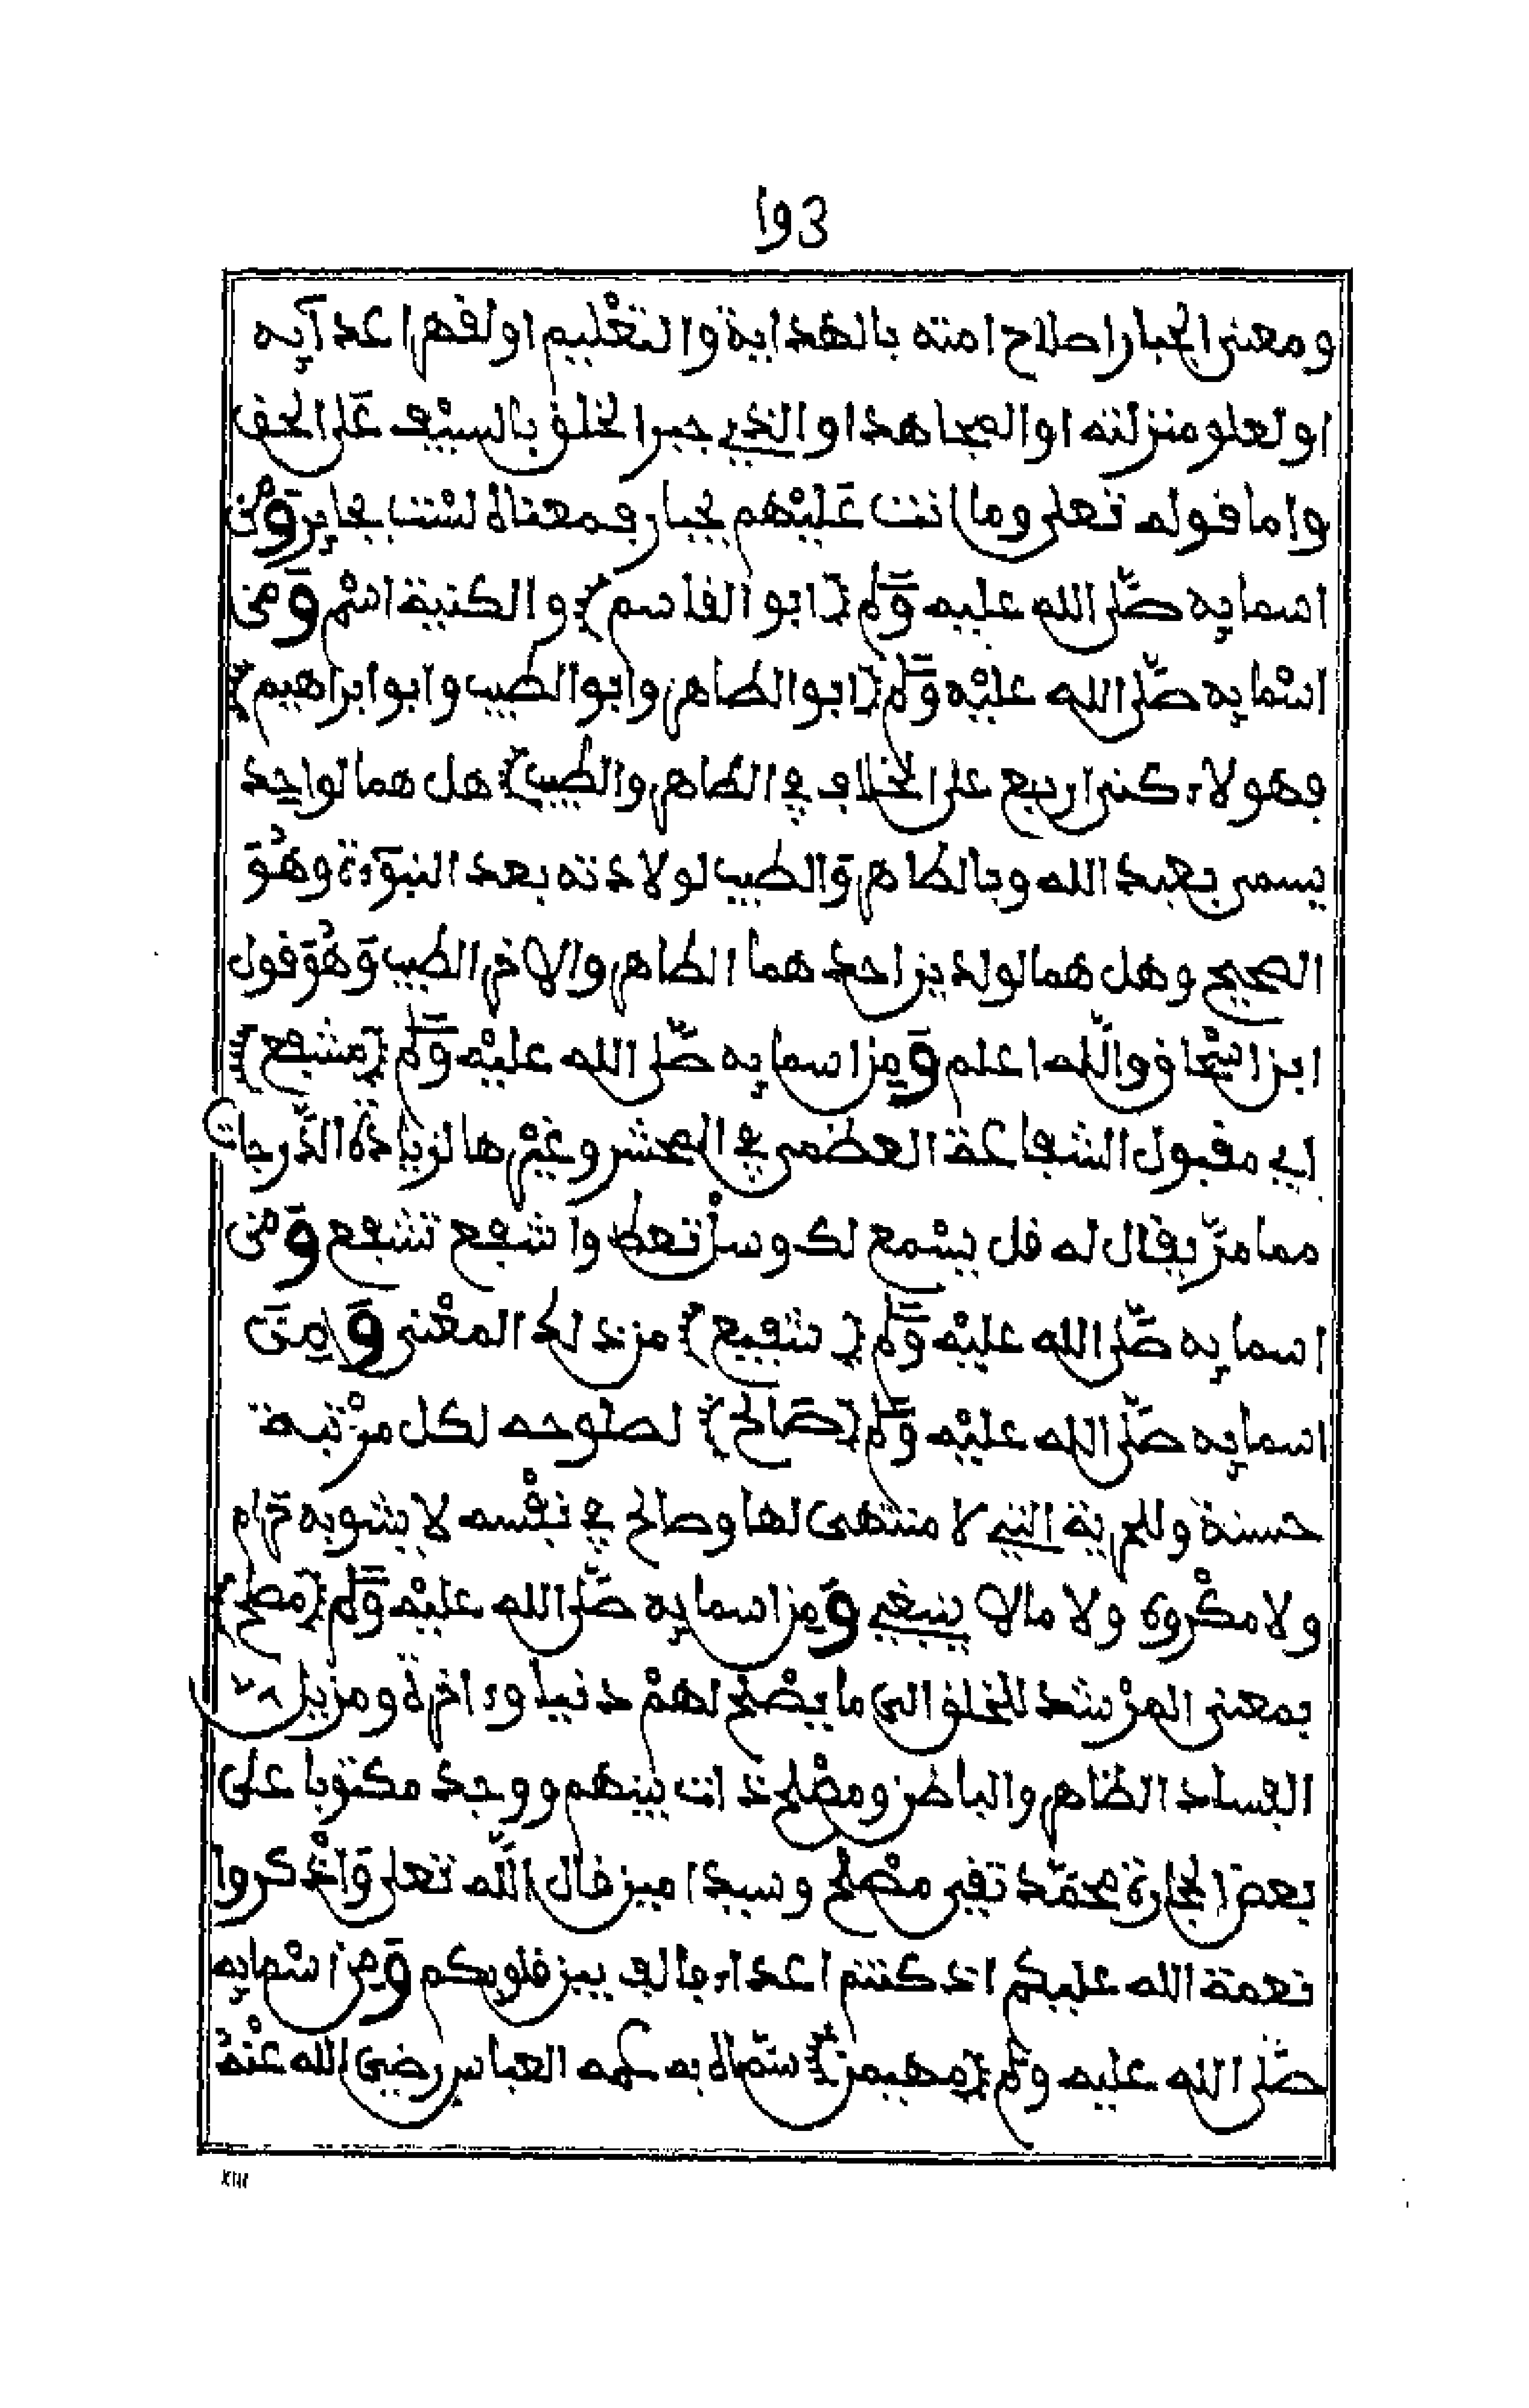 193
ومعنى الجبار اصلاح امته بالهداية والتعليم او لقهر اعدآيه
او لعلو منزلته او المجاهد او الذي جبر الخلق بالسيف على الحق
واما قوله تعلى وما انت عليهم بجبار فمعناه لست بجابر ومن
اسمايه صلى الله عليه وسلم {ابو القاسم} والكنية اسم ومن
اسمايه صلى الله عليه وسلم {ابو الطاهر وابو الطيب وابو ابراهيم}
فهولاء كنى اربع على الخلاف في الطاهر والطيب هل هما لواحد
يسمى بعبد الله وبالطاهر والطيب لولادته بعد النبوءة وهو
الصحيح وهل هما لولدين احدهما الطاهر والاخر الطيب وهو قول
ابن اسحاق والله اعلم ومن اسمايه صلى الله عليه وسلم {مشفع}
اي مقبول الشفاعة العظمى في المحشر وغيرها لزيادة الدرجات
مما مر يقال له قل يسمع لك وسل تعط واشفع تشفع ومن
اسمايه صلى الله عليه وسلم {شفيع} من ذلك المعنى ومن
اسمايه صلى الله عليه وسلم {صالح} لصلوحه لكل مرتبة
حسنة وللحرية التي لا منتهى لها وصالح في نفسه لا يشوبه حرام
ولا مكروه ولا ما لا ينبغي ومن اسمايه صلى الله عليه وسلم {مصلح}
بمعنى المرشد للخلق الى ما يصلح لهم دنيا وءاخرة ومزيل
الفساد الظاهر والباطن ومصلح ذات بينهم ووجد مكتوبا على
بعض الحجارة محمد تقي مصلح وسيد امين قال الله تعلى واذكروا
نعمة الله عليكم اذ كنتم اعداء فالف بين قلوبكم ومن اسمايه
صلى الله عليه وسلم {مهيمن} سماه به عمه العباس رضي الله عنه